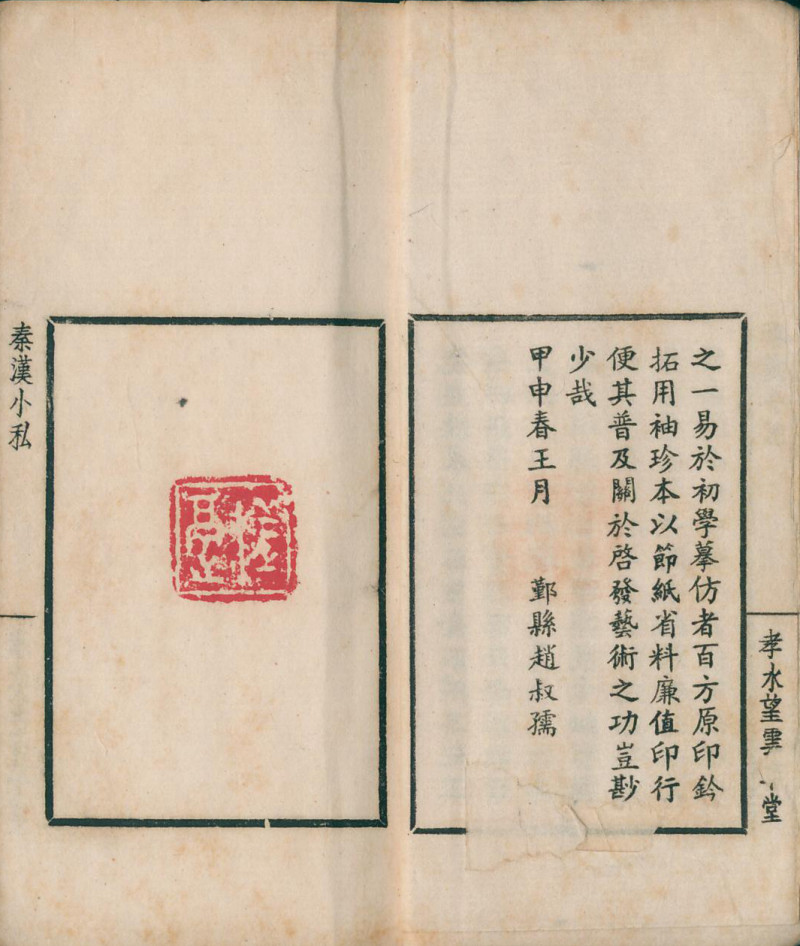 孝水望雲 堂
之一易於初學摹仿者百方原印鈐
拓用袖珍本以節紙省料廉值印行
便其普及關於啓發藝術之功豈尠
少哉
甲申春王月 鄞縣趙叔孺
秦漢小私